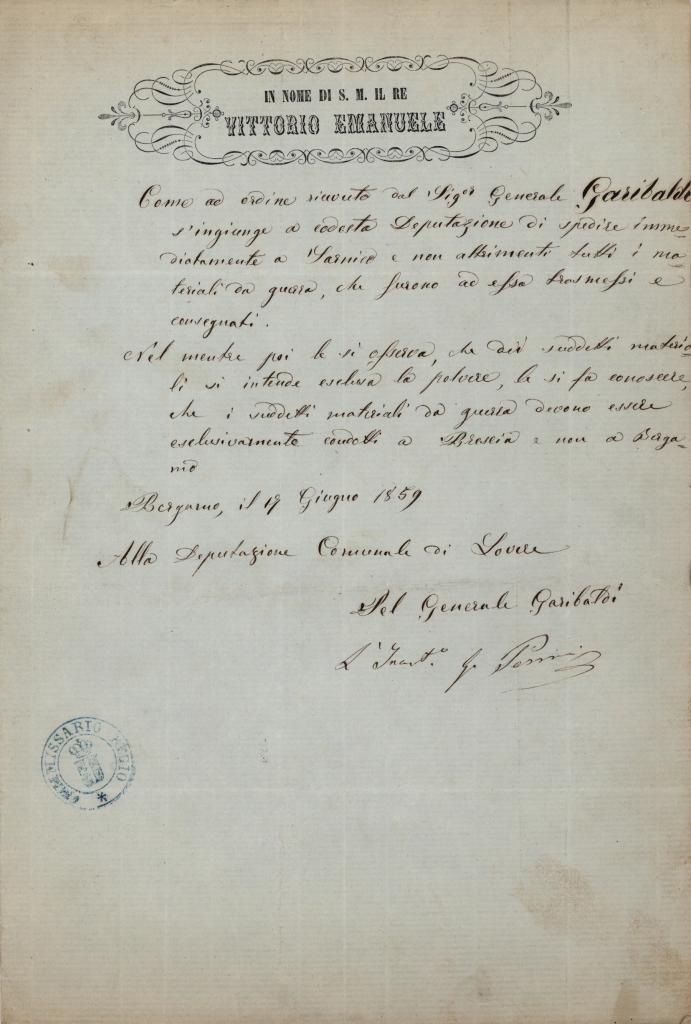 IN NOME DI S. M. IL RE
VITTORIO EMANUELE
Come ad ordine ricevuto dal Sigor Generale Garibaldi
s'ingiunge a codesta Deputazione di spedire imme-
diatamente a Sarnico e non altrimenti tutti i ma-
teriali da guerra, che furono ad essa trasmessi e
consegnati.
Nel mentre poi le si osserva, che dei suddetti materia-
li si intende esclusa la polvere, le si fa conoscere,
che i suddetti materiali da guerra devono essere
esclusivamente condotti a Brescia e non a Berga-
mo
Bergamo, il Giugno 1859
Alla Deputazione Comunale di Lovere
Pel Generale Garibaldi
L'
COMMISSARIO REGIO